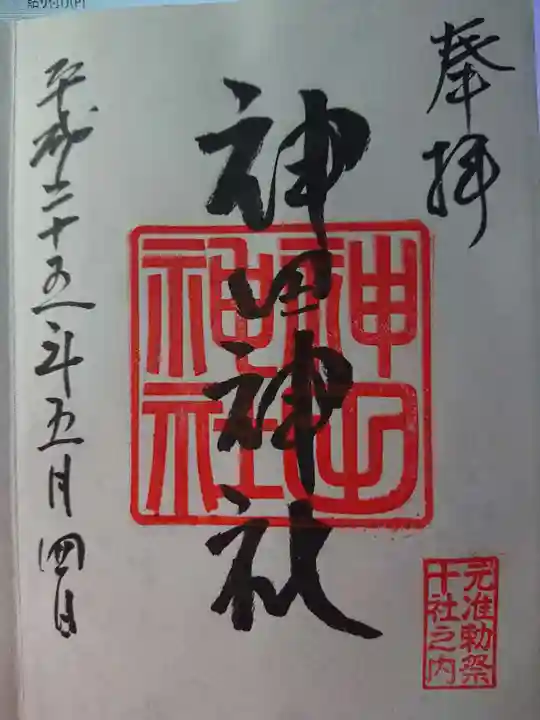 貼り付け(P)
奉拝
神田神社
神田神社
元准勅祭
十社之内
平成二十五年五月四日